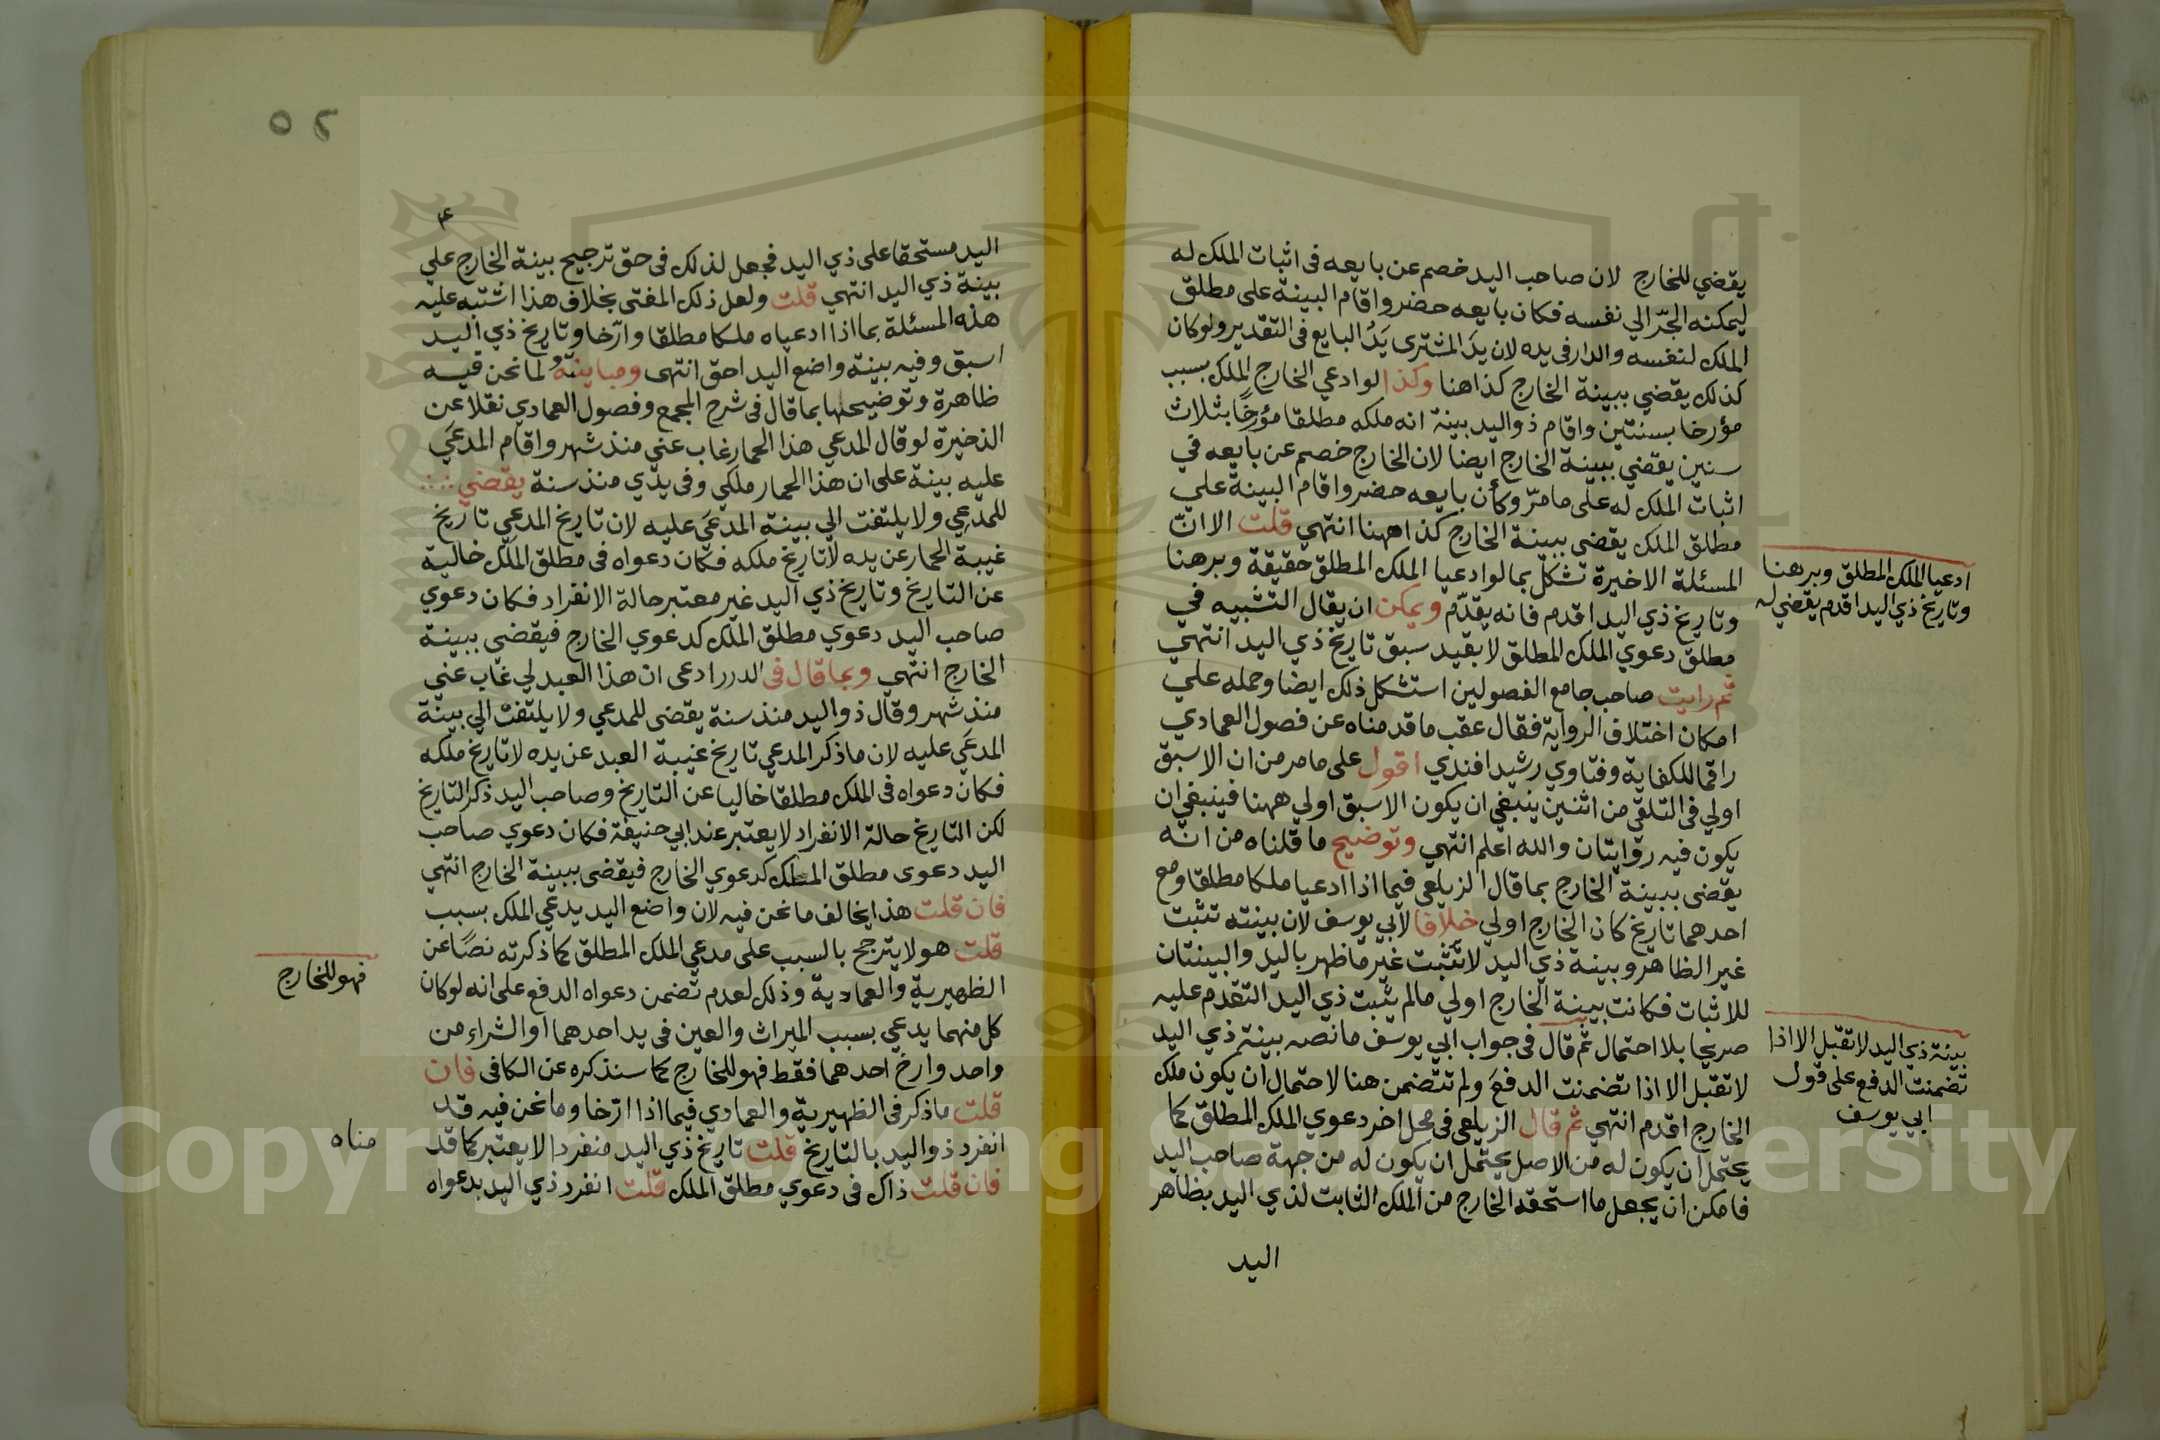 يقضي للخارج لان صاحب اليد خصم عن بايعه فى اثبات الملك له
ليمكنه الجرّ الي نفسه فكان بايعه حضر واقام البينة على مطلق
الملك لنفسه والدار فى يده لان يدَ المشترى يَدُ البايع فى التقدير ولوكان
كذلك يقضي ببينة الخارج كذا هنا وكذا لوادعي الخارج الملك بسبب
مؤرخا بسنتين واقام ذو اليد بينة انه ملكه مطلقا مؤرخًا بثلاث
سنين يقضي ببينة الخارج ايضا لان الخارج خصم عن بايعه في
اثبات الملك له على مامرّ وكأن بايعه حضر واقام البينة علي
مطلق الملك يقضى ببينة الخارج كذا ههنا انتهي قلت الا انّ
المسئلة الاخيرة تشكل بمالوادعيا الملك المطلق حقيقة وبرهنا
وتاريخ ذي اليد اقدم فانه يقدّم ويمكن ان يقال التشبيه في
مطلق دعوي الملك المطلق لابقيد سبق تاريخ ذي اليد انتهي
ثم رايت صاحب جامع الفصولين استشكل ذلك ايضا وحمله علي
امكان اختلاف الرواية فقال عقب ماقدمناه عن فصول العمادي
راقما للكفاية وفتاوي رشيد افندي اقول على مامر من ان الاسبق
اولي فى التلقى من اثنين ينبغي ان يكون الاسبق اولي ههنا فينبغي ان
يكون فيه روايتان والله اعلم انتهي وتوضيح ما قلناه من انه
يقضى ببينة الخارج بما قال الزيلعى فيما اذا ادعيا ملكا مطلقا ومع
احدهما تاريخ كان الخارج اولي خلافا لابي يوسف لان بينته تثبت
غير الظاهر وبينة ذي اليد لاتثبت غير ماظهر باليد والبينتان
للاثبات فكانت بينة الخارج اولي مالم يثبت ذي اليد التقدم عليه
صريحا بلا احتمال ثم قال فى جواب ابي يوسف مانصه بينة ذي اليد
لاتقبل الا اذا تضمنت الدفعَ ولم تتضمن هنا لاحتمال ان يكون ملك
الخارج اقدم انتهي ثم قال الزيلعى فى محل اخر دعوي الملك المطلق كما
يحتمل ان يكون له من الاصل يحتمل ان يكون له من جهة صاحب اليد
فامكن ان يجعل ما استحقه الخارج من الملك الثابت لذي اليد بظاهر
اليد
ادعيا الملك المطلق وبرهنا
وتاريخ ذي اليد اقدم يقضي له
بينة ذي اليد لاتقبل الا اذا
تضمنت الدفع على قول
ابي يوسف
٥٢
٤
اليد مستحقا على ذي اليد فجعل لذلك فى حق ترجيح بينة الخارج علي
بينة ذي اليد انتهي قلت ولعل ذلك المفتى بخلاف هذا اشتبه عليه
هذه المسئلة بما اذا ادعياه ملكا مطلقا وارّخا وتاريخ ذي اليد
اسبق وفيه بينة واضع اليد احق انتهى ومباينتهُ لمانحن فيه
ظاهرة وتوضيحها بماقال فى شرح المجمع وفصول العمادي نقلا عن
الذخيرة لوقال المدعي هذا الحمار غاب عني منذ شهر واقام المدعيَ
عليه بينة على ان هذا الحمار ملكي وفى يدي منذ سنة يقضي
للمدعِي ولا يلتفت الي بينة المدعَي عليه لان تاريخ المدعي تاريخ
غيبة الحمار عن يده لاتاريخ ملكه فكان دعواه فى مطلق الملك خالية
عن التاريخ وتاريخ ذي اليد غير معتبر حالة الانفراد فكان دعوي
صاحب اليد دعوي مطلق الملك كدعوي الخارج فيقضى ببينة
الخارج انتهي وبماقال فى الدرر ادعى ان هذا العبد لي غاب عني
منذ شهر وقال ذو اليد منذ سنة يقضى للمدعي ولا يلتفت الي بينة
المدعَي عليه لان ماذكر المدعي تاريخ غيبة العبد عن يده لاتاريخ ملكه
فكان دعواه فى الملك مطلقا خاليا عن التاريخ وصاحب اليد ذكر التاريخ
لكن التاريخ حالة الانفراد لايعتبر عند ابي حنيفة فكان دعوي صاحب
اليد دعوى مطلق الملك كدعوي الخارج فيقضى ببينة الخارج انتهي
فان قلت هذا يخالف مانحن فيه لان واضع اليد يدعي الملك بسبب
قلت هو لايترجح بالسبب على مدعي الملك المطلق كما ذكرته نصًا عن
الظهيرية والعمادية وذلك لعدم تضمن دعواه الدفع على انه لوكان
كل منهما يدعي بسبب الميراث والعين فى يد احدهما او الشراء من
واحد وارخ احدهما فقط فهو للخارج كما سنذكره عن الكافى فان
قلت ماذكر فى الظهيرية والعمادي فيما اذا ارّخا ومانحن فيه قد
انفرد ذو اليد بالتاريخ قلت تاريخ ذي اليد منفردا لايعتبر كما قد
فان قلت ذاك فى دعوي مطلق الملك قلت انفرد ذي اليد بدعواه
فهو للخارج
مناه
Copyright © King Saud University